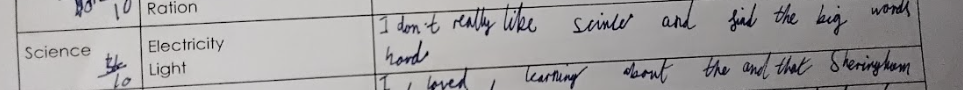 10 Ration
I don't really like scinle and find the big words
Science Electricity
hard
10 Light
I loved learning about the and that Sheringham